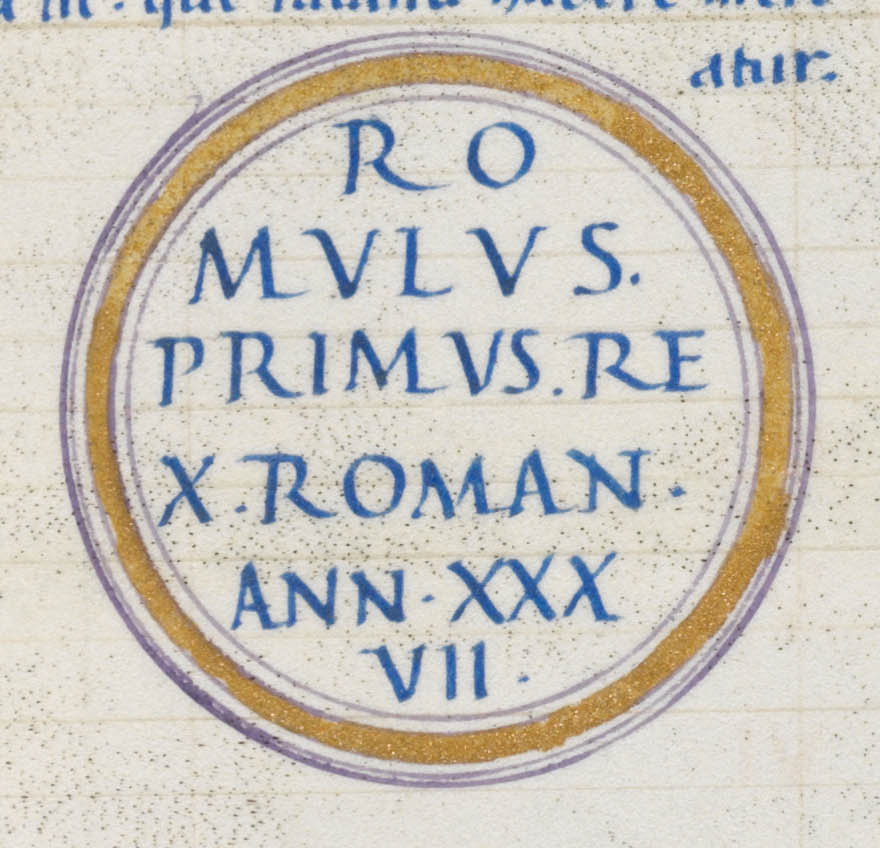 atur.
RO
MVLVS.
PRIMVS.RE
X.ROMAN.
ANN.XXX
VII.